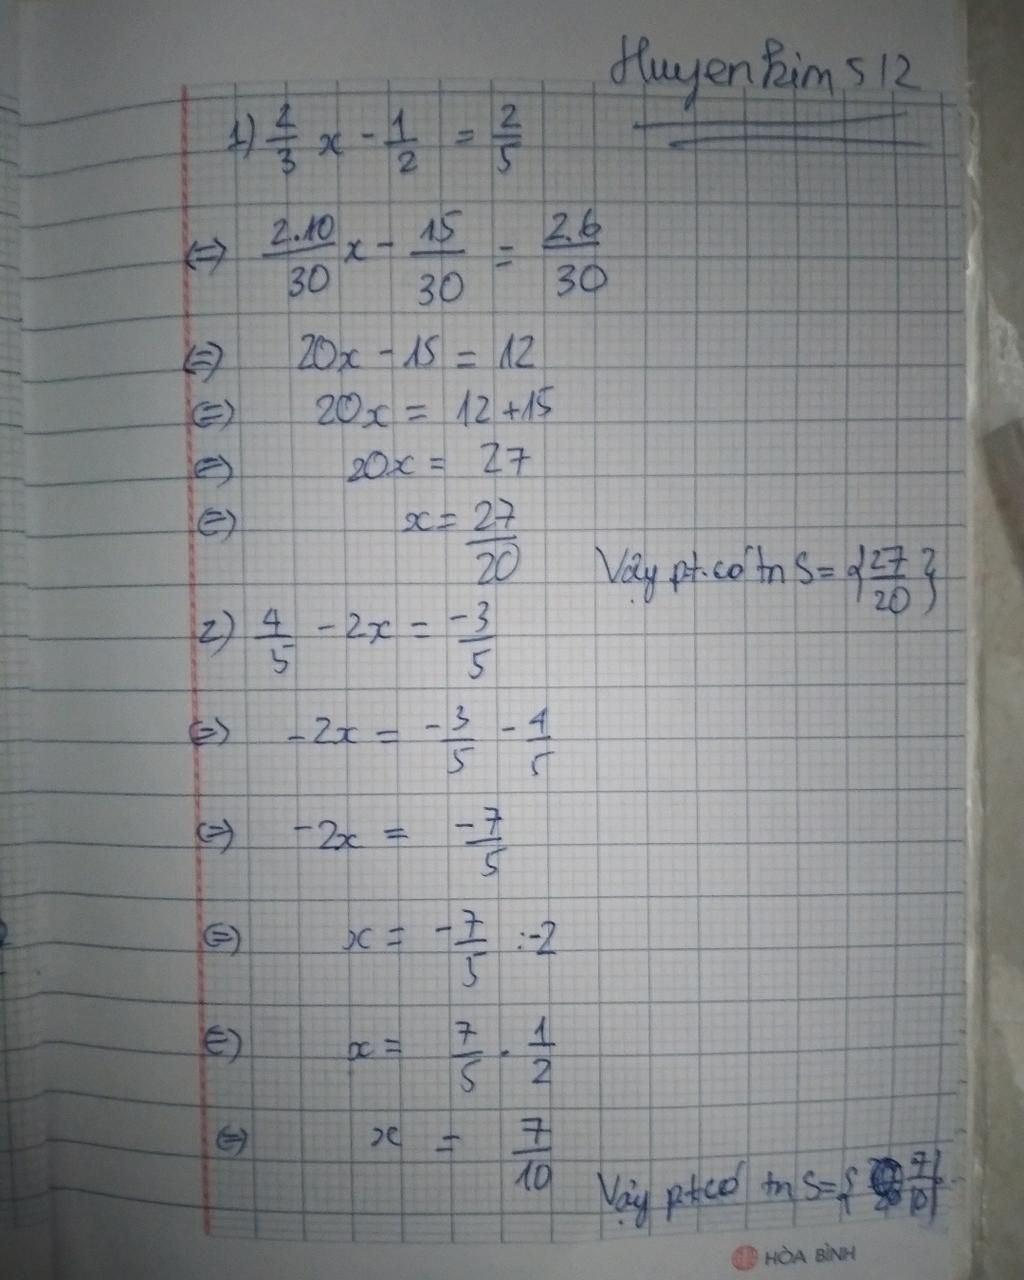 Huyenkim512
1) 2/3 x - 1/2 = 2/5
⇔ 2.10/30 x - 15/30 = 2.6/30
⇔ 20x - 15 = 12
⇔ 20x = 12 + 15
⇔ 20x = 27
⇔ x = 27/20
Vậy pt có tn S = {27/20}
2) 4/5 - 2x = -3/5
⇔ -2x = -3/5 - 4/5
⇔ -2x = -7/5
⇔ x = -7/5 : -2
⇔ x = 7/5 . 1/2
⇔ x = 7/10
Vậy pt có tn S = {7/10}
HÒA BÌNH